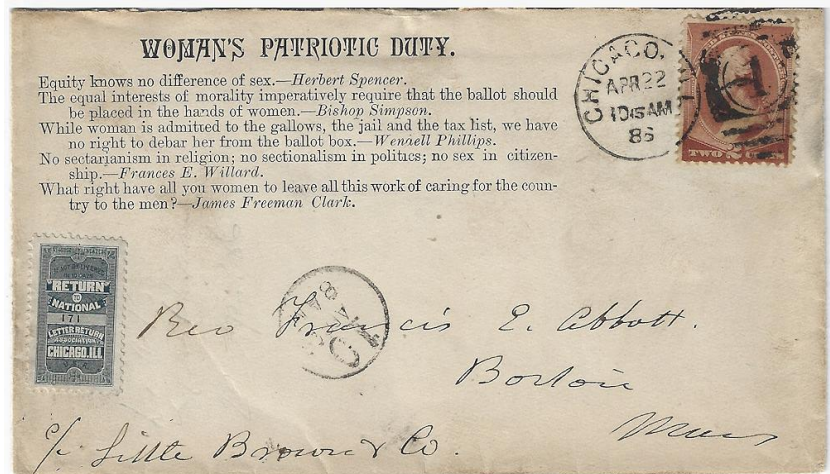 WOMAN'S PATRIOTIC DUTY.
Equity knows no difference of sex.—Herbert Spencer.
The equal interests of morality imperatively require that the ballot should
be placed in the hands of women.—Bishop Simpson.
While woman is admitted to the gallows, the jail and the tax list, we have
no right to debar her from the ballot box.—Wendell Phillips.
No sectarianism in religion; no sectionalism in politics; no sex in citizen-
ship.—Frances E. Willard.
What right have all you women to leave all this work of caring for the coun-
try to the men?—James Freeman Clark.
CHICAGO,
APR 22
1015AM
86
TWO CENTS
"RETURN"
TO
NATIONAL
171
LETTER RETURN
ASSOCIATION
CHICAGO, ILL
Rev Francis E. Abbott.
Boston
Mass
c/o Little Brown & Co.